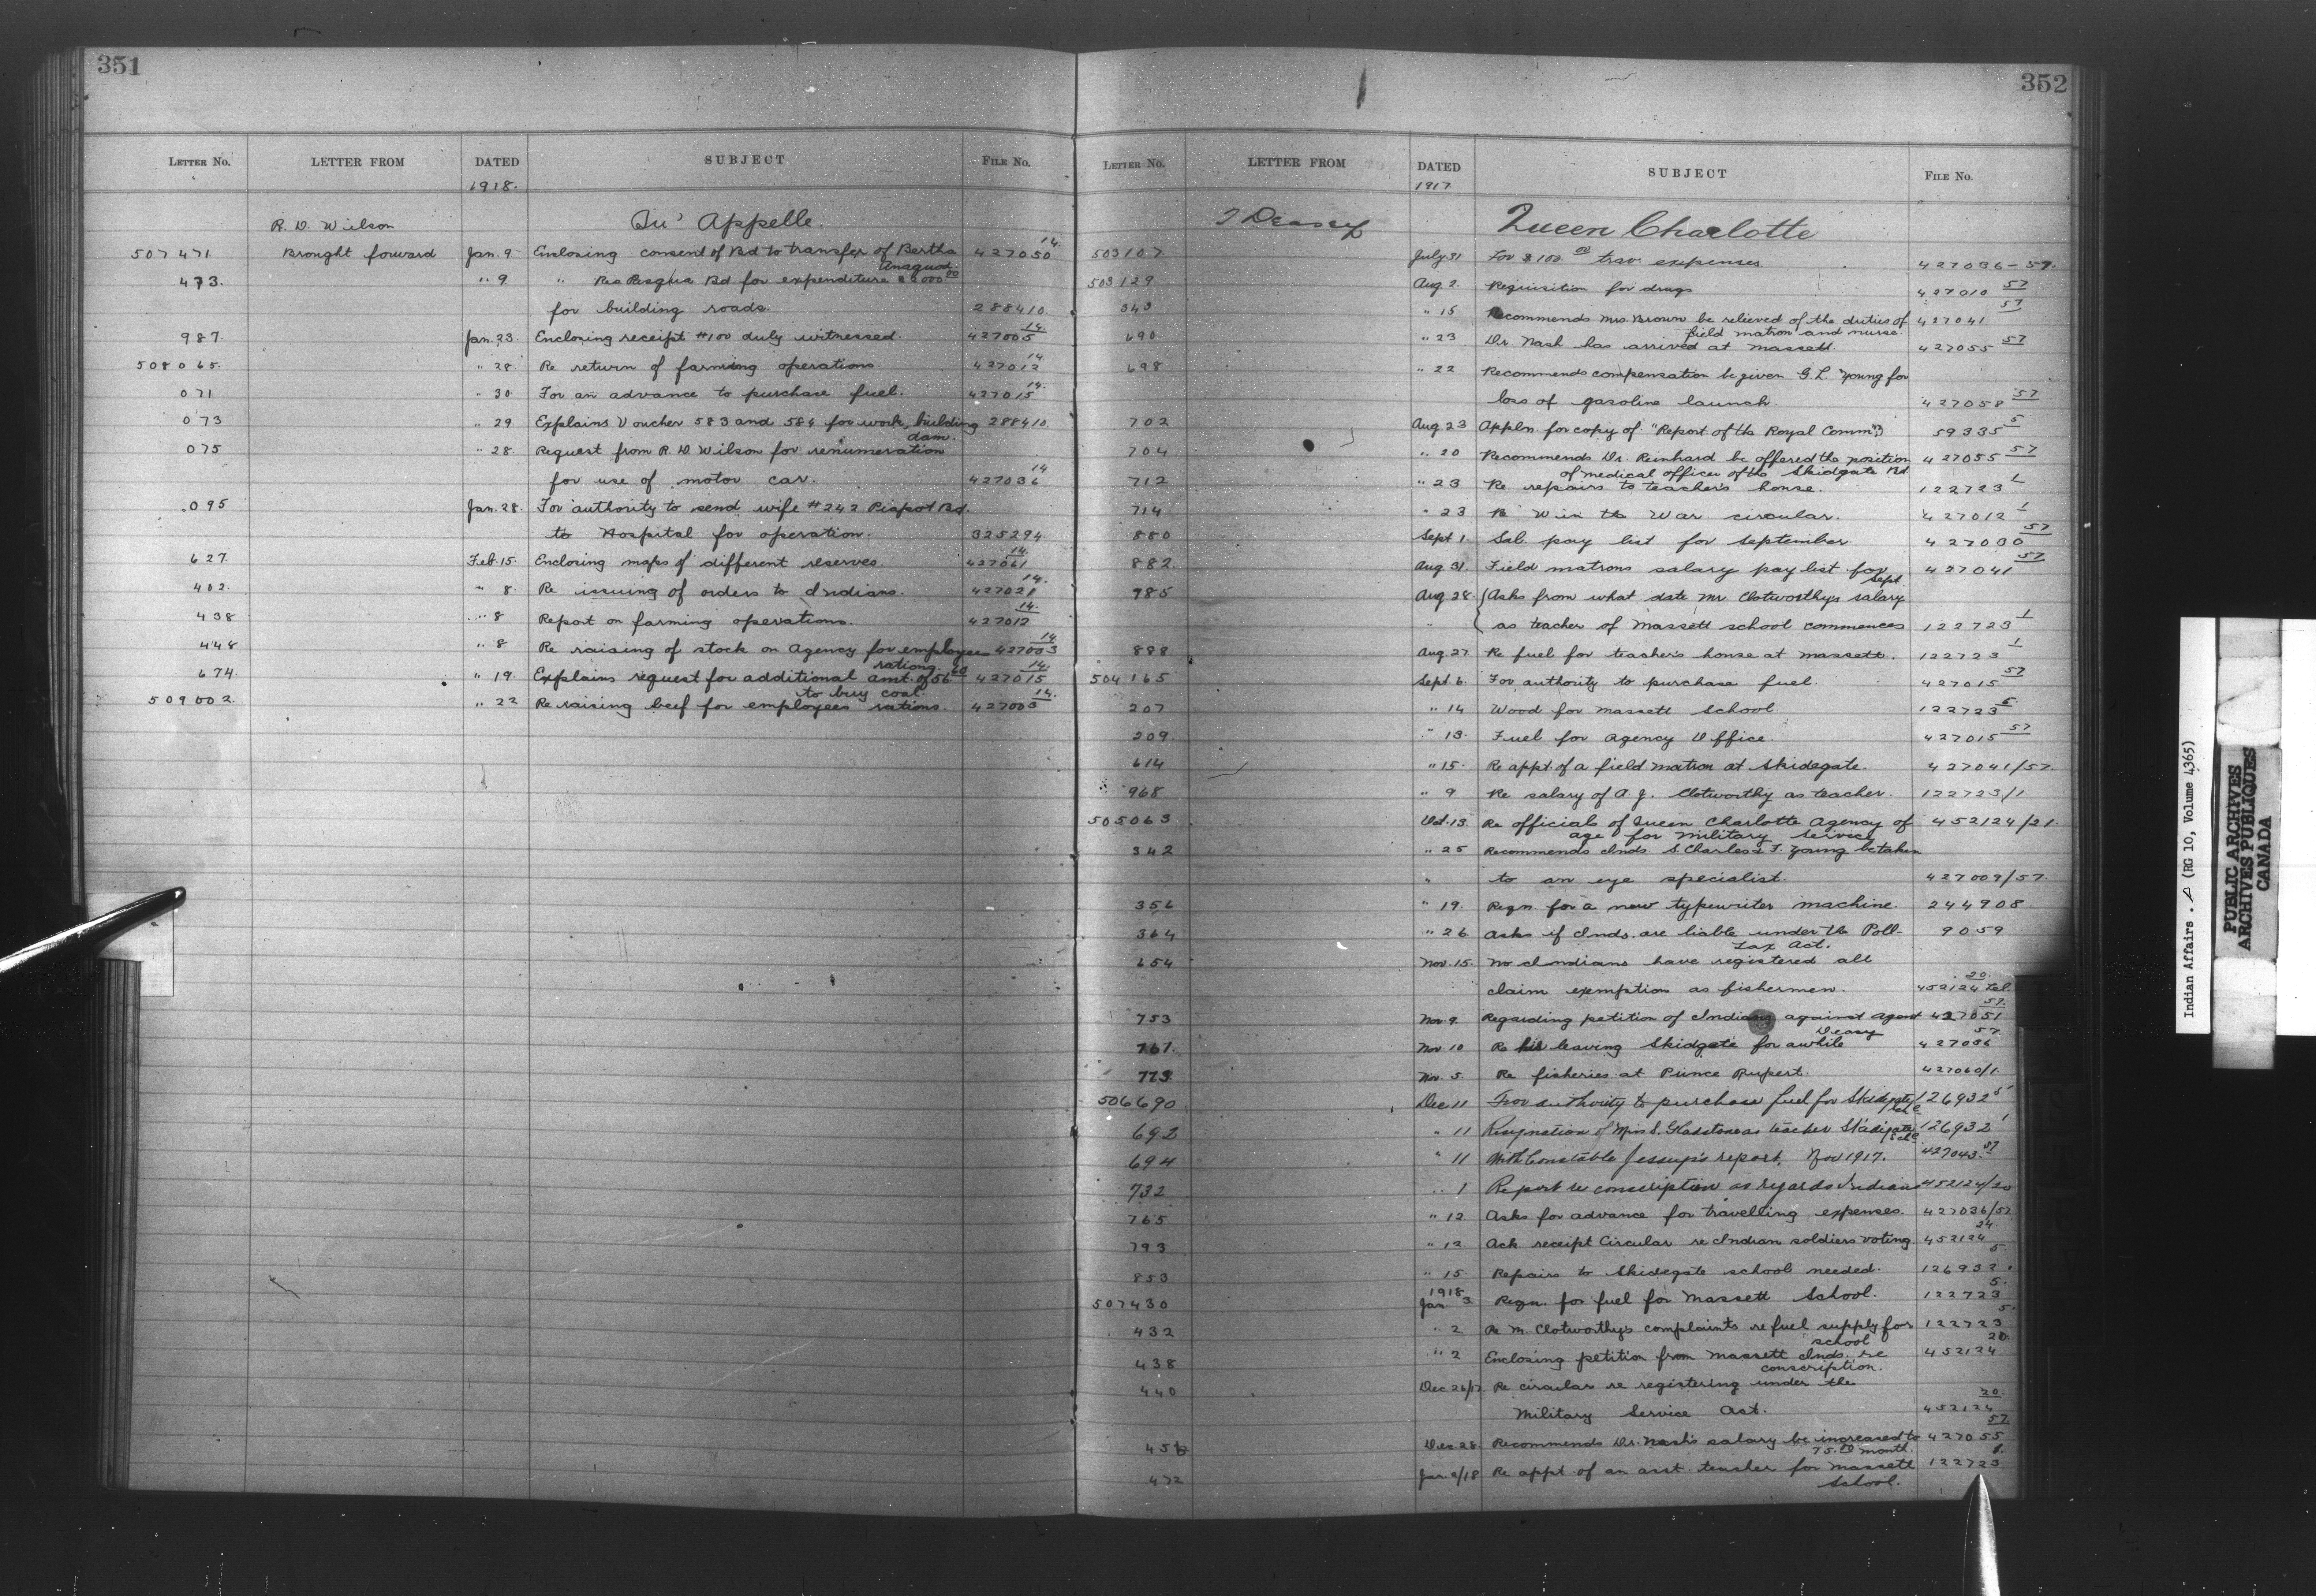 351
Letter No. LETTER FROM DATED SUBJECT File No.
1918.
R. D. Wilson Qu' Appelle.
507471 Brought forward Jan. 9 Enclosing consent of Bd to transfer of Bertha 427050 14.
Anaquod.
473. " 9 " Res Pasqua Bd for expenditure
for building roads. 288410.
987 Jan. 23. Enclosing receipt #100 duly witnessed. 427005 14.
508065. " 28. Re return of farming operations. 427012 14.
071 " 30 For an advance to purchase fuel. 427015 14.
073 " 29 Explains Voucher 583 and 584 for work, building 288410.
dam.
075 " 28. Request from R. D. Wilson for renumeration
for use of motor car. 427036 14
095 Jan. 28. For authority to send wife #242 Piapot Bd.
to Hospital for operation. 325294.
627. Feb. 15. Enclosing maps of different reserves. 427061 14.
402. " 8. Re issuing of orders to Indians. 427021 14.
438 " 8 Report on farming operations. 427012 14.
448 " 8 Re raising of stock on Agency for employees 427003 14
rations.
674. " 19. Explains request for additional amt. of 427015 14.
to buy coal.
509002. " 22 Re raising beef for employees rations. 427003 14.
352
Letter No. LETTER FROM DATED SUBJECT File No.
1917
Deasy Queen Charlotte
503107 July 31 For $100.00 trav. expenses 427036-57.
503129 Aug 2. Requisition for drugs 427010 57
343 " 15 Recommends Mrs. Brown be relieved of the duties of 427041 57
field matron and nurse.
690 " 23 Dr. Nash has arrived at Massett. 427055 57
698 " 22 Recommends compensation be given G. L. Young for
loss of gasoline launch. 427058 57
702 Aug 23 Appln. for copy of "Report of the Royal Commn" 59335 5
704 " 20 Recommends Dr. Reinhard be offered the position 427055 57
of medical officer of the Skidgate Bd
712 " 23 Re repairs to teacher's house. 122723 1
714 " 23 Re Win the War circular. 427012 1
880 Sept 1. Sal. pay list for September. 427030 57
882 Aug 31. Field matrons salary pay list for 427041 57
Sept.
985 Aug 28. Asks from what date Mr. Clotworthys salary
" as teacher of Massett school commences 122723 1
888 Aug. 27 Re fuel for teacher's house at Massett. 122723 1
504165 Sept. 6. For authority to purchase fuel. 427015 57
207 " 14 Wood for Massett School. 122723 5.
209. " 13. Fuel for Agency Office. 427015 57
614 " 15. Re appt. of a field matron at Skidegate. 427041/57.
968 " 9 Re salary of A. J. Clotworthy as teacher. 122723/1
505063 Oct. 13. Re officials of Queen Charlotte Agency of 452124/21.
age for military service
342 " 25 Recommends Inds S. Charles & T. Young be taken
" to an eye specialist. 427009/57.
356 " 19. Reqn. for a new typewriter machine. 244908
364 " 26 Asks if Inds. are liable under the Poll- 9059
Tax Act.
654 Nov. 15. No Indians have registered all
claim exemption as fishermen. 452124 20. Tel.
753 Nov. 9. Regarding petition of Indians against Agent 427051 57.
Deasy
767. Nov. 10 Re his leaving Skidgate for awhile 427036 57.
773. Nov. 5. Re fisheries at Prince Rupert. 427060/1.
506690 Dec 11 For authority to purchase fuel for Skidgate 126932 5
692 " 11 Resignation of Miss S. Gladstone as teacher Skidgate 126932 1
694 " 11 With Constable Jessup's report, Nov 1917. 427043. 57
732 " 1 Report re conscription as regards Indians 452124/20
765 " 12. Asks for advance for travelling expenses. 427036/57
793 " 12. Ack receipt Circular re Indian soldiers voting. 452124 24
853 " 15. Repairs to Skidegate school needed. 126932 5.
1918.
507430 Jan 3. Reqn. for fuel for Massett School. 122723 5.
432 " 2 Re M. Clotworthy's complaints re fuel supply for 122723 5.
school
438 " 2 Enclosing petition from Massett Inds. re 452124 20.
conscription.
440 Dec 26/17 Re circular re registering under the
Military Service Act. 452124 20.
456 Dec 28. Recommends Dr. Nash's salary be increased to 427055 57
75.00 month.
472 Jan 2/18 Re appt. of an asst. teacher for Massett 122723 1.
School.
Indian Affairs. (RG 10, Volume 4365)
PUBLIC ARCHIVES
ARCHIVES PUBLIQUES
CANADA